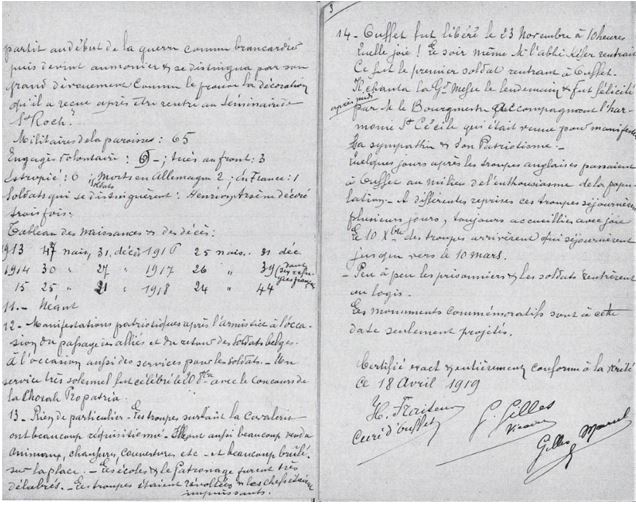 partit au début de la guerre comme brancardier
puis devint aumonier & se distingua par son
grand dévouement comme le prouve la décoration
qu'il a reçue après être rentré au Séminaire de
St Roch.
Militaires de la paroisse : 65
Engagés volontaires : 6 - ; tués au front : 3
Estropié : 0 ; soldats morts en Allemagne 2 ; en France : 1
Soldats qui se distinguèrent : Henrion Arsène décoré
trois fois.
Tableau des naissances & des décès :
1913 47 nais, 31 décès 1916 25 nais. 31 déc
1914 30 " 27 " 1917 26 " 39 (dont
15 25 " 21 " 1918 24 " 44
11. - Néant
12. - Manifestations patriotiques après l'armistice à l'occa-
sion du passage des alliés et du retour des soldats belges.
à l'occasion aussi des services pour les soldats. - Un
service très solennel fut célébré le avec le concours de
la Chorale Propatria.
13. Rien de particulier - Les troupes surtout la Cavalerie
ont beaucoup réquisitionné. aussi beaucoup vendu
animaux, couvertures etc - et beaucoup brûlé
sur la place. - Les écoles & le Patronage furent très
délabrés. - Les troupes étaient révoltées & les chefs étaient
impuissants.
3
14 - Ouffet fut libéré le 23 Novembre à 10 heures
Quelle joie ! Le soir même Mr l'abbé rentrait
Ce fut le premier soldat rentrant à Ouffet.
Il chanta la Gd Messe le lendemain & fut félicité
après midi par M le Bourgmestre accompagnant l'har-
monie Ste Cécile qui était venue pour manifester
sa sympathie & son Patriotisme -
Quelques jours après les troupes anglaises passaient
à Ouffet au milieu de l'enthousiasme de la popu
lation. - A différentes reprises ces troupes séjournèrent
plusieurs jours, toujours accueillies avec joie
Le 10 Xbre des troupes arrivèrent qui séjournèrent
jusque vers le 10 mars.
- Peu à peu les prisonniers & les soldats rentrèrent
au logis.
Les monuments commémoratifs sont à cette
date seulement projetés.
Certifié exact & entièrement conforme à la vérité
Ce 18 Avril 1919
H.
Curé d'Ouffet
G Gilles
Vicaire
Gilles Marcel